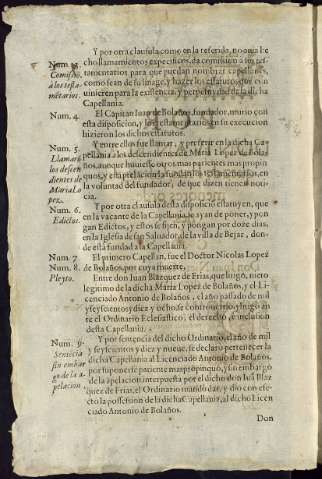 Num. 3.
Comission
à los testa-
mentarios.
Y por otra clausula como en la referida, no auia he-
cho llamamientos especificos, da comission a sus tes-
tamentarios para que puedan nombrar capellanes,
como sean de su linage, y hazer los estatutos que con-
uinieren para la existencia, y perpetuydad de la dicha
Capellania.
Num. 4.
El Capitan Iuan de Bolaños fundador, murio con
esta disposicion, y los testamentarios en su execucion
hizieron los dichos estatutos.
Num. 5.
Llamaró
los descen-
dientes de
Maria Lo-
pez.
Y entre ellos fue llamar, y preferir en la dicha Ca-
pellania a los descendientes de Maria Lopez de Bola-
ños, aunque huuiesse otros mas parientes mas propin-
quos, y esta prelacion la fundan los testamentarios, en
la voluntad del fundador, de que dizen tienen noti-
cia.
Num. 6.
Edictos.
Y por otra clausula desta disposicion estatuyen, que
en la vacante de la Capellania se ayan de poner, y pon-
gan Edictos, y estos se fijen, y pongan por doze dias,
en la Iglesia de san Saluador, de la villa de Bejar, don-
de està fundada la Capellania.
Num. 7
El primero Capellan, fue el Doctor Nicolas Lopez
de Bolaños, por cuya muerte.
Num. 8.
Pleyto.
Entre don Iuan Blazquez de Frias, que litigò, nieto
legitimo de la dicha Maria Lopez de Bolaños, y el Li-
cenciado Antonio de Bolaños, el año passado de mil
y seyscientos y diez y ocho se controuertio, y litigò an-
te el Ordinario Eclesiastico, el derecho, è inclusion
desta Capellania.
Num. 9.
Sentēcia
sin embar-
go de la a-
pelacion
Y por sentencia del dicho Ordinario, el año de mil
y seyscientos y diez y nueue, se declarò pertenecer la
dicha Capellania al Licenciado Antonio de Bolaños,
por suponerse pariente mas propinquo, y sin embargo
de la apelacion interpuesta por el dicho don Iuã Blaz
quez de Frias, el Ordinario mandò dar, y dio con efec-
to la possession de la dicha Capellania, al dicho Licen
ciado Antonio de Bolaños.
Don